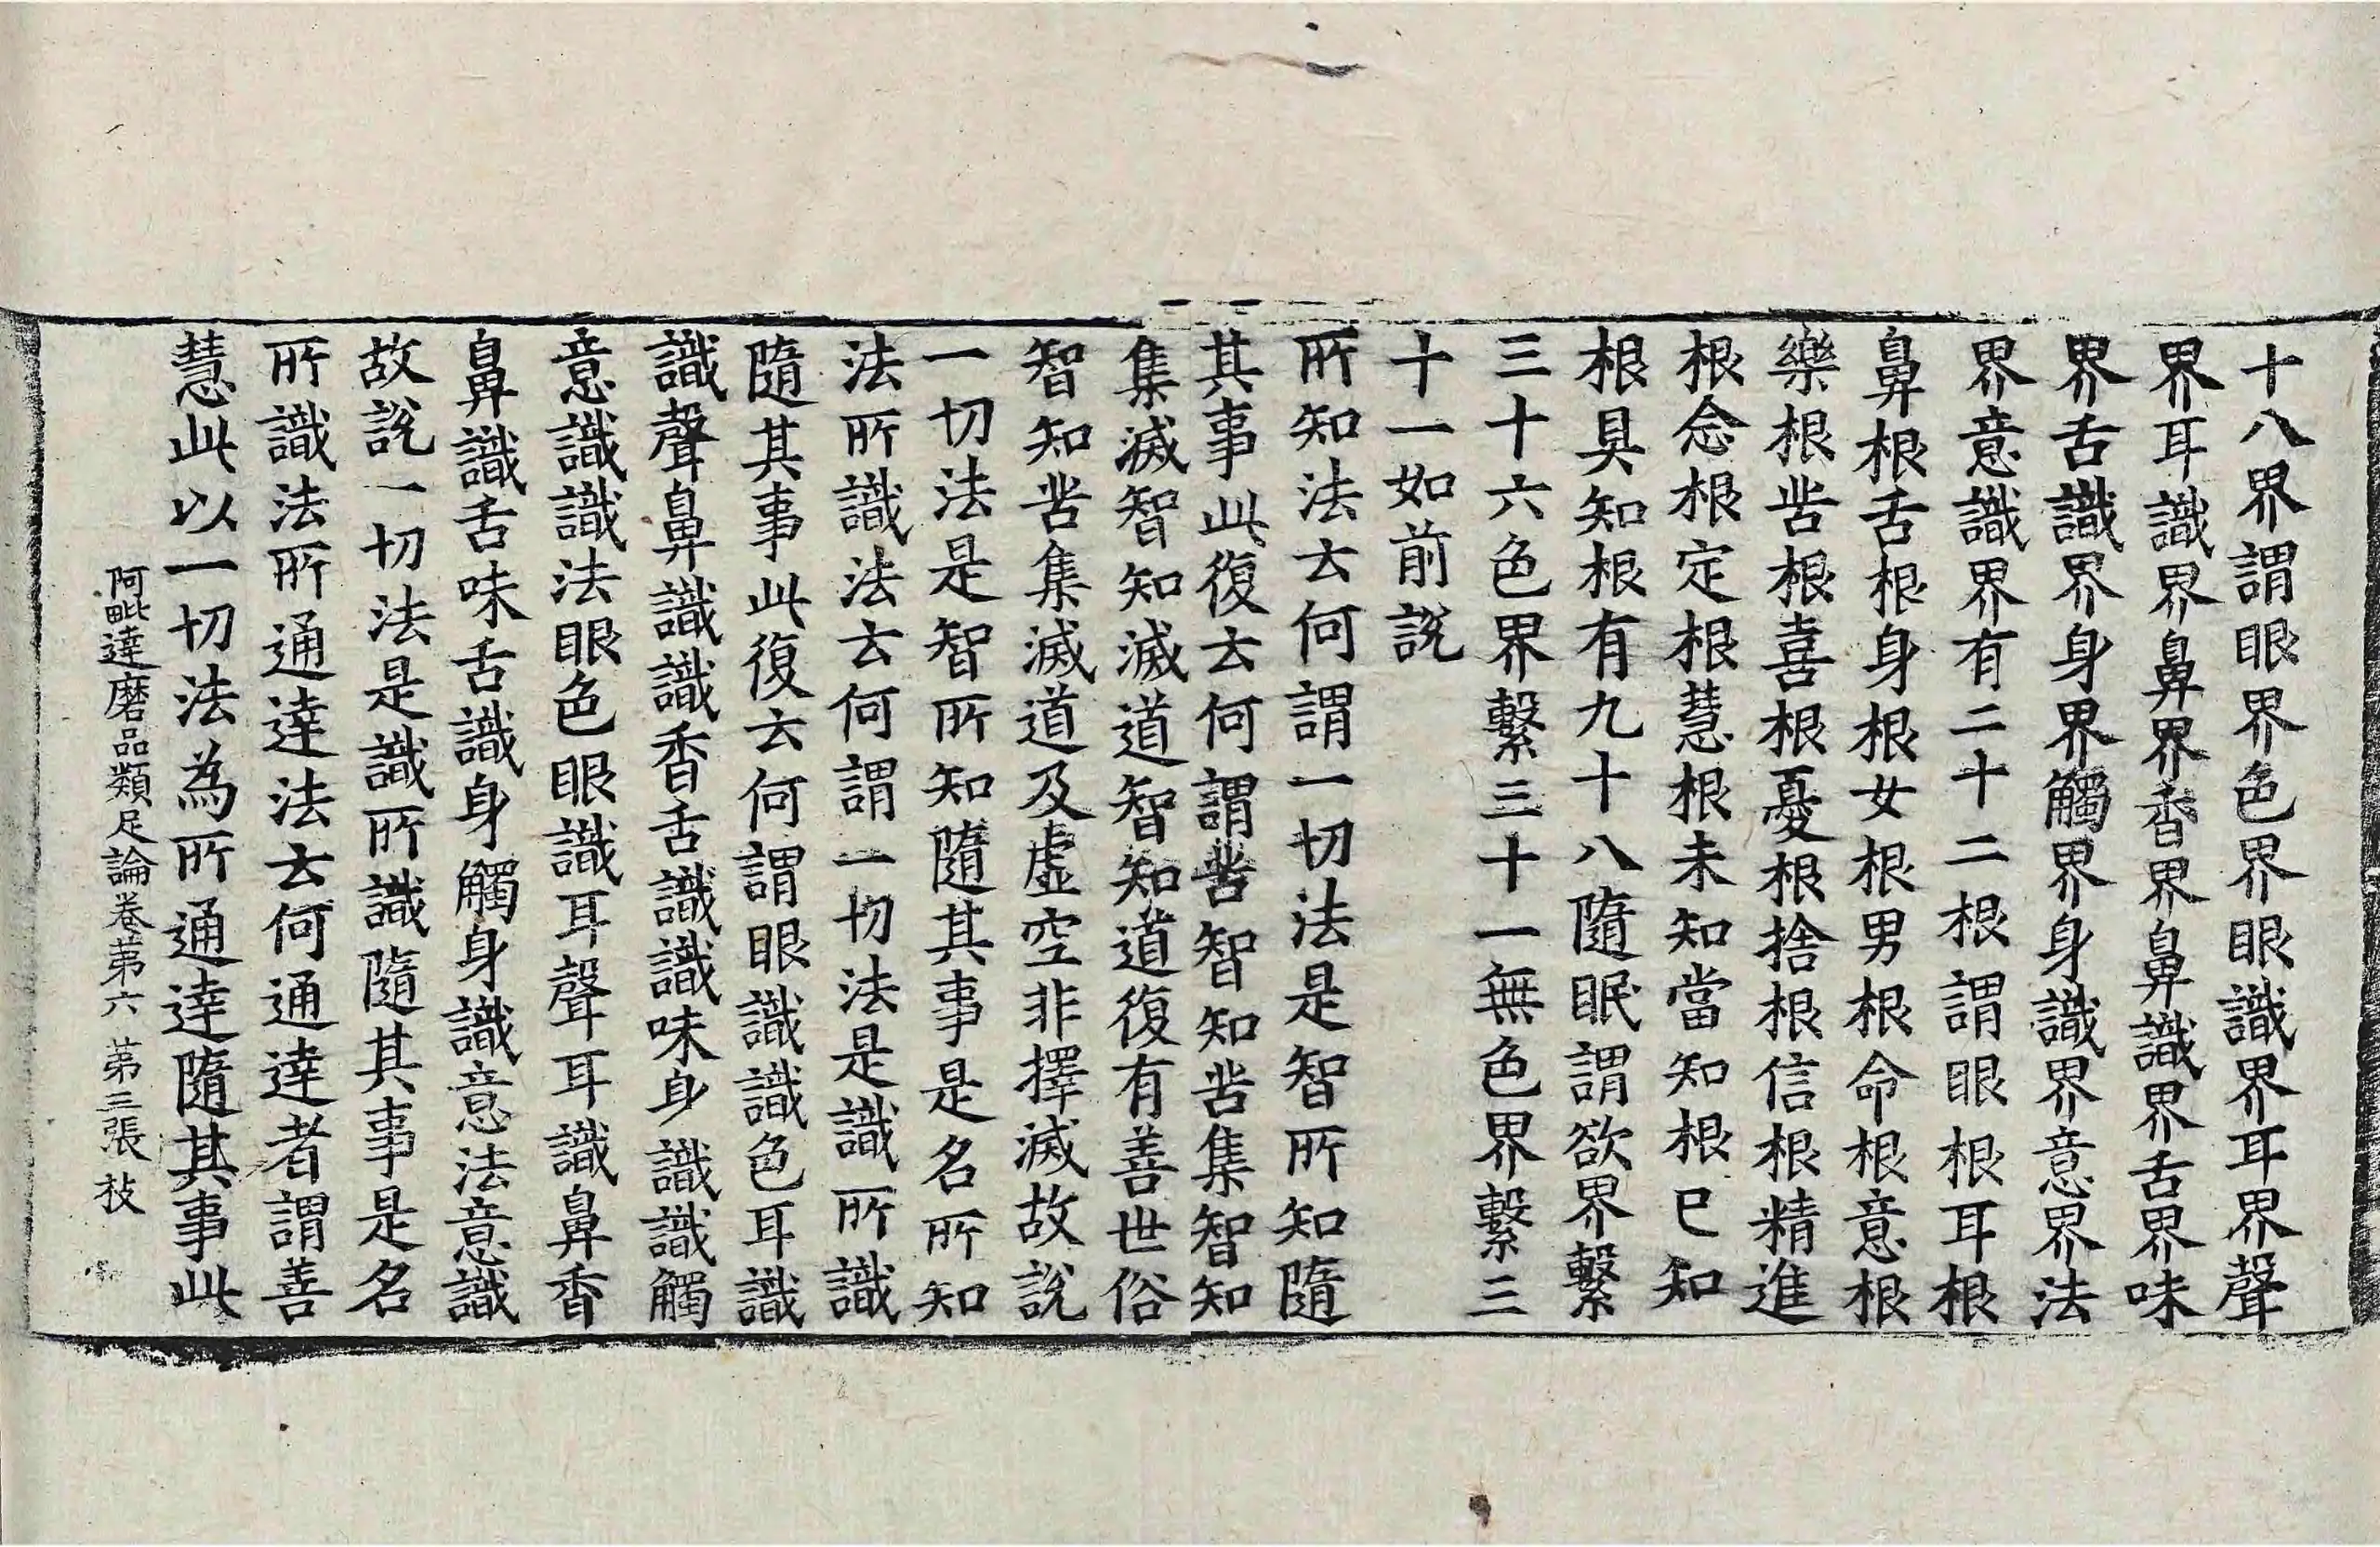 十八界謂眼界色界眼識界耳界聲
界耳識界鼻界香界鼻識界舌界味
界舌識界身界觸界身識界意界法
界意識界有二十二根謂眼根耳根
鼻根舌根身根女根男根命根意根
樂根苦根喜根憂根捨根信根精進
根念根定根慧根未知當知根已知
根具知根有九十八隨眠謂欲界繫
三十六色界繫三十一無色界繫三
十一如前說
所知法云何謂一切法是智所知隨
其事此復云何謂苦智知苦集智知
集滅智知滅道智知道復有善世俗
智知苦集滅道及虛空非擇滅故說
一切法是智所知隨其事是名所知
法所識法云何謂一切法是識所識
隨其事此復云何謂眼識識色耳識
識聲鼻識識香舌識識味身識識觸
意識識法眼色眼識耳聲耳識鼻香
鼻識舌味舌識身觸身識意法意識
故說一切法是識所識隨其事是名
所識法所通達法云何通達者謂善
慧此以一切法為所通達隨其事此
阿毗達磨品類足論卷第六 第三張 枝